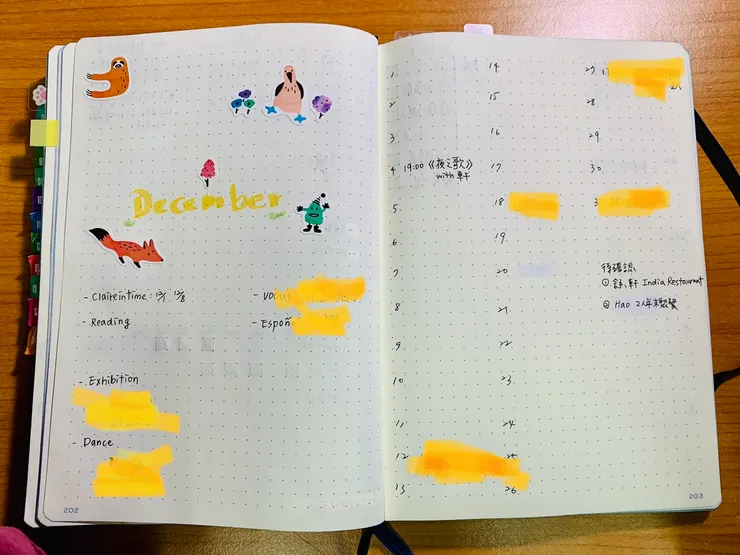 December
- Claireintime: 12/1 12/8
- Reading
- Españ
- Exhibition
- Dance
202
1
2
3
4 19:00 《夜之歌》
with 軒
5
6
7
8
9
10
11
12
13
14
15
16
17
18
19
20
21
22
23
24
25
26
27
28
29
30
3
待確認
① 軒 India Restaurant
② Hao 2人年末聚餐
203